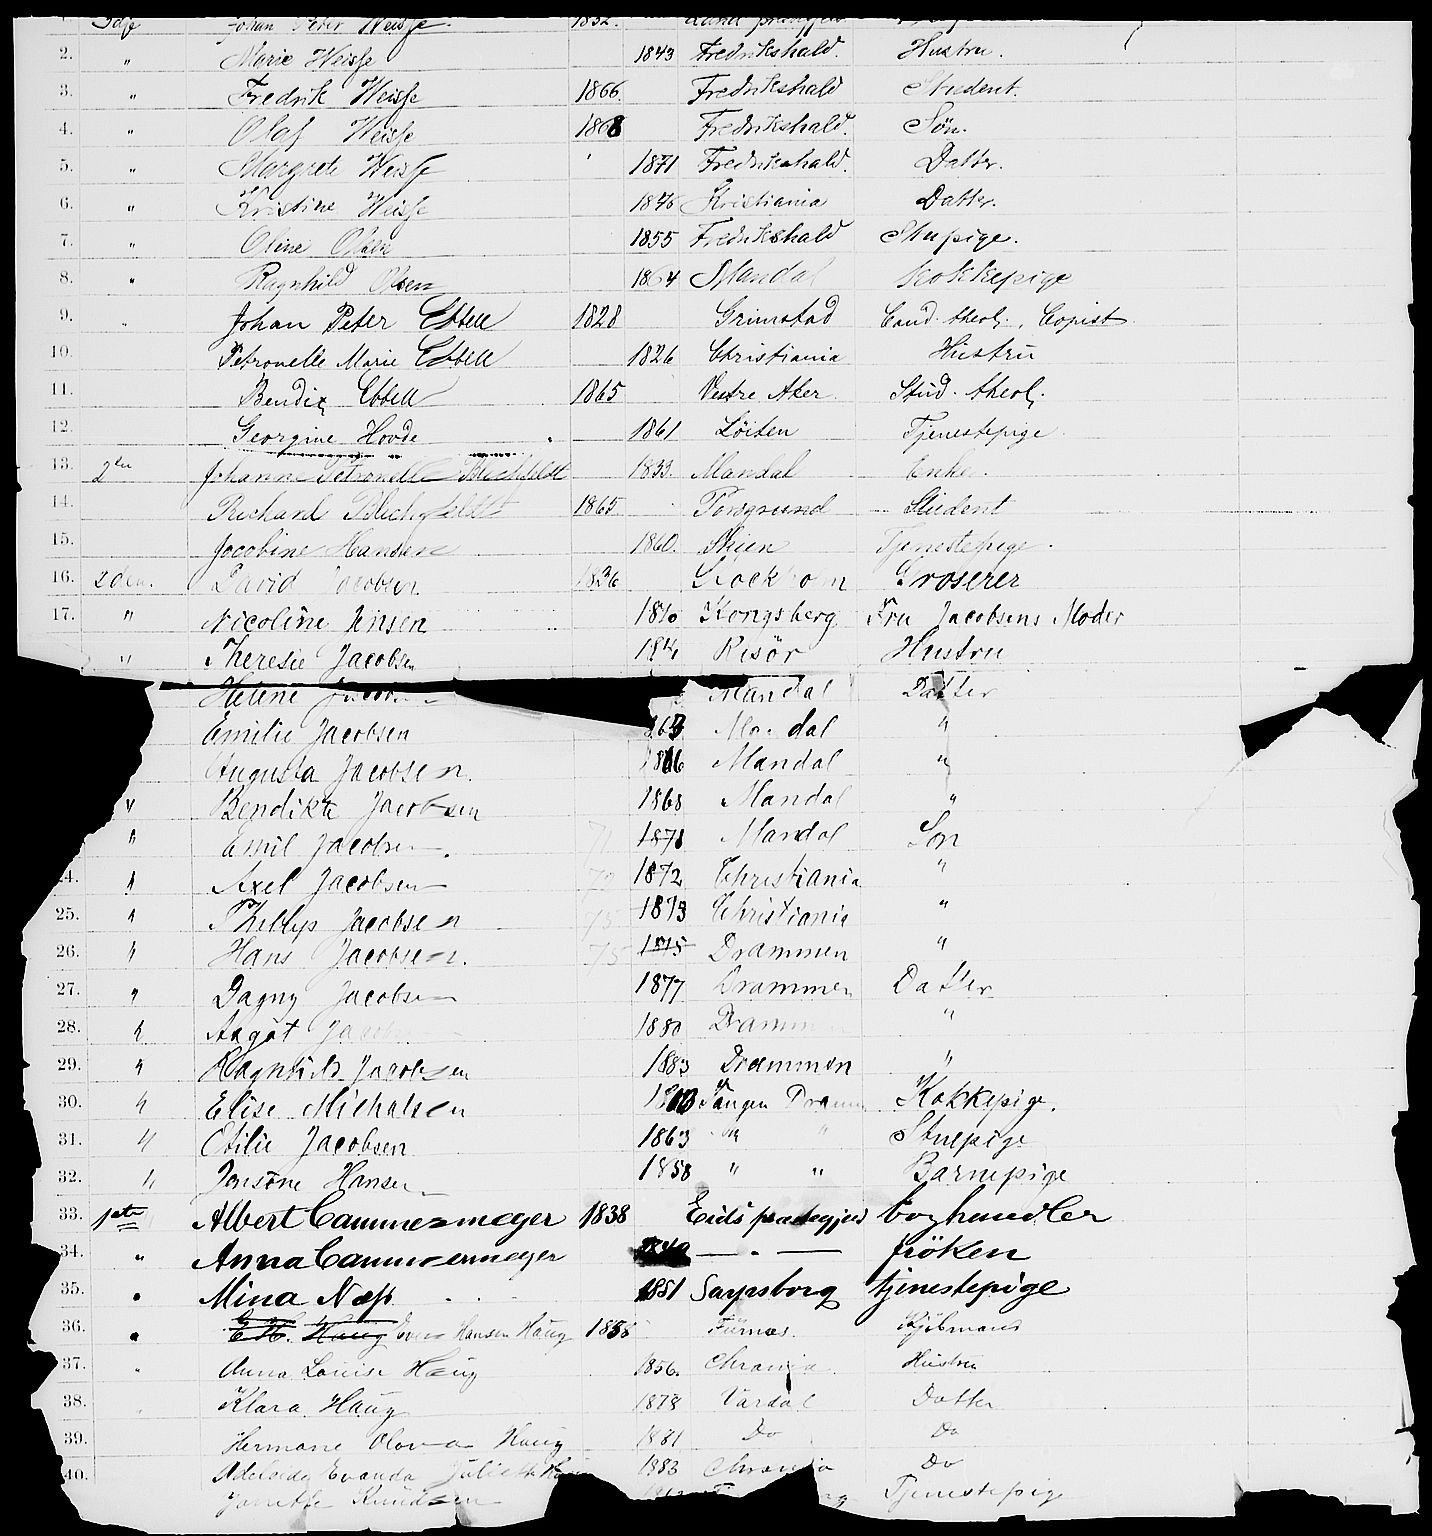 Johan Peter Weisse 1832.
2. " Marie Weisse 1843 Fredrikshald. Hustru.
3. " Fredrik Weisse 1866. Fredrikshald Student.
4. " Olaf Weisse 1868 Fredrikshald. Sön.
5. " Margrete Weisse 1871 Fredrikshald. Datter.
6. " Kristine Weisse 1876 Kristiania Datter.
7. " Oline Olsen 1855 Fredrikshald Stupige.
8. " Ragnhild Olsen 1864 Mandal Kokkepige
9. " Johan Peter Ebbell 1828 Grimstad Cand. theol., Copist
10. Petronelle Marie Ebbell 1826 Christiania Hustru
11. Bendix Ebbell 1865 Vestre Aker Stud. theol.
12. Georgine Hovde 1861 Löiten Tjenestepige
13. Johanne Petronelle Blechfeldt 1833. Mandal Enke.
14. Richard Blechfeldt 1865. Porsgrund Student
15. Jacobine Hansen 1860. Skien Tjenestepige.
16. David Jacobsen 1836 Stockholm Groserer
17. " Nicoline Jensen Kongsberg Fru Jacobsens Moder
" Theresie Jacobsen Risör Hustru
Helene Jacobsen Mandal Datter
Emilie Jacobsen 1863 Mandal "
Augusta Jacobsen. 1866 Mandal "
" Bendikte Jacobsen 1868 Mandal "
" Emil Jacobsen. 71 1871 Mandal Son
24. " Axel Jacobsen 72 1872 Christiania "
25. " Jacobsen 1873 Christiania "
26. " Hans Jacobsen. 75 1875 Drammen "
27. " Dagny Jacobsen 1877 Drammen Datter
28. " Aagot Jacobsen 1880 Drammen "
29. " Ragnhild Jacobsen 1883 Drammen "
30. " Elise Michalsen Tangen Dramm Kokkepige.
31. " Otilie Jacobsen 1863 " " Stuepige
32. " Hansen 1858 " " Barnepige
33. 1ste Albert Cammermeyer 1838 Eids præstegjeld boghandler
34. " Anna Cammermeyer 1840 — " — fröken
35. " Mina Næss 1851 Sarpsborg tjenestepige
36. " Even Hansen Haug 1858 Furnæs. Kjöbmand
37. " Anna Louise Haug 1856. Chrania Hustru
38. " Klara Haug 1878 Vardal Datter
39. Hermane Olava Haug 1881 Do Do
40. Adelaide Evanda Juliette Haug 1883 Chrania Do
Janette Knudsen Tjenestepige